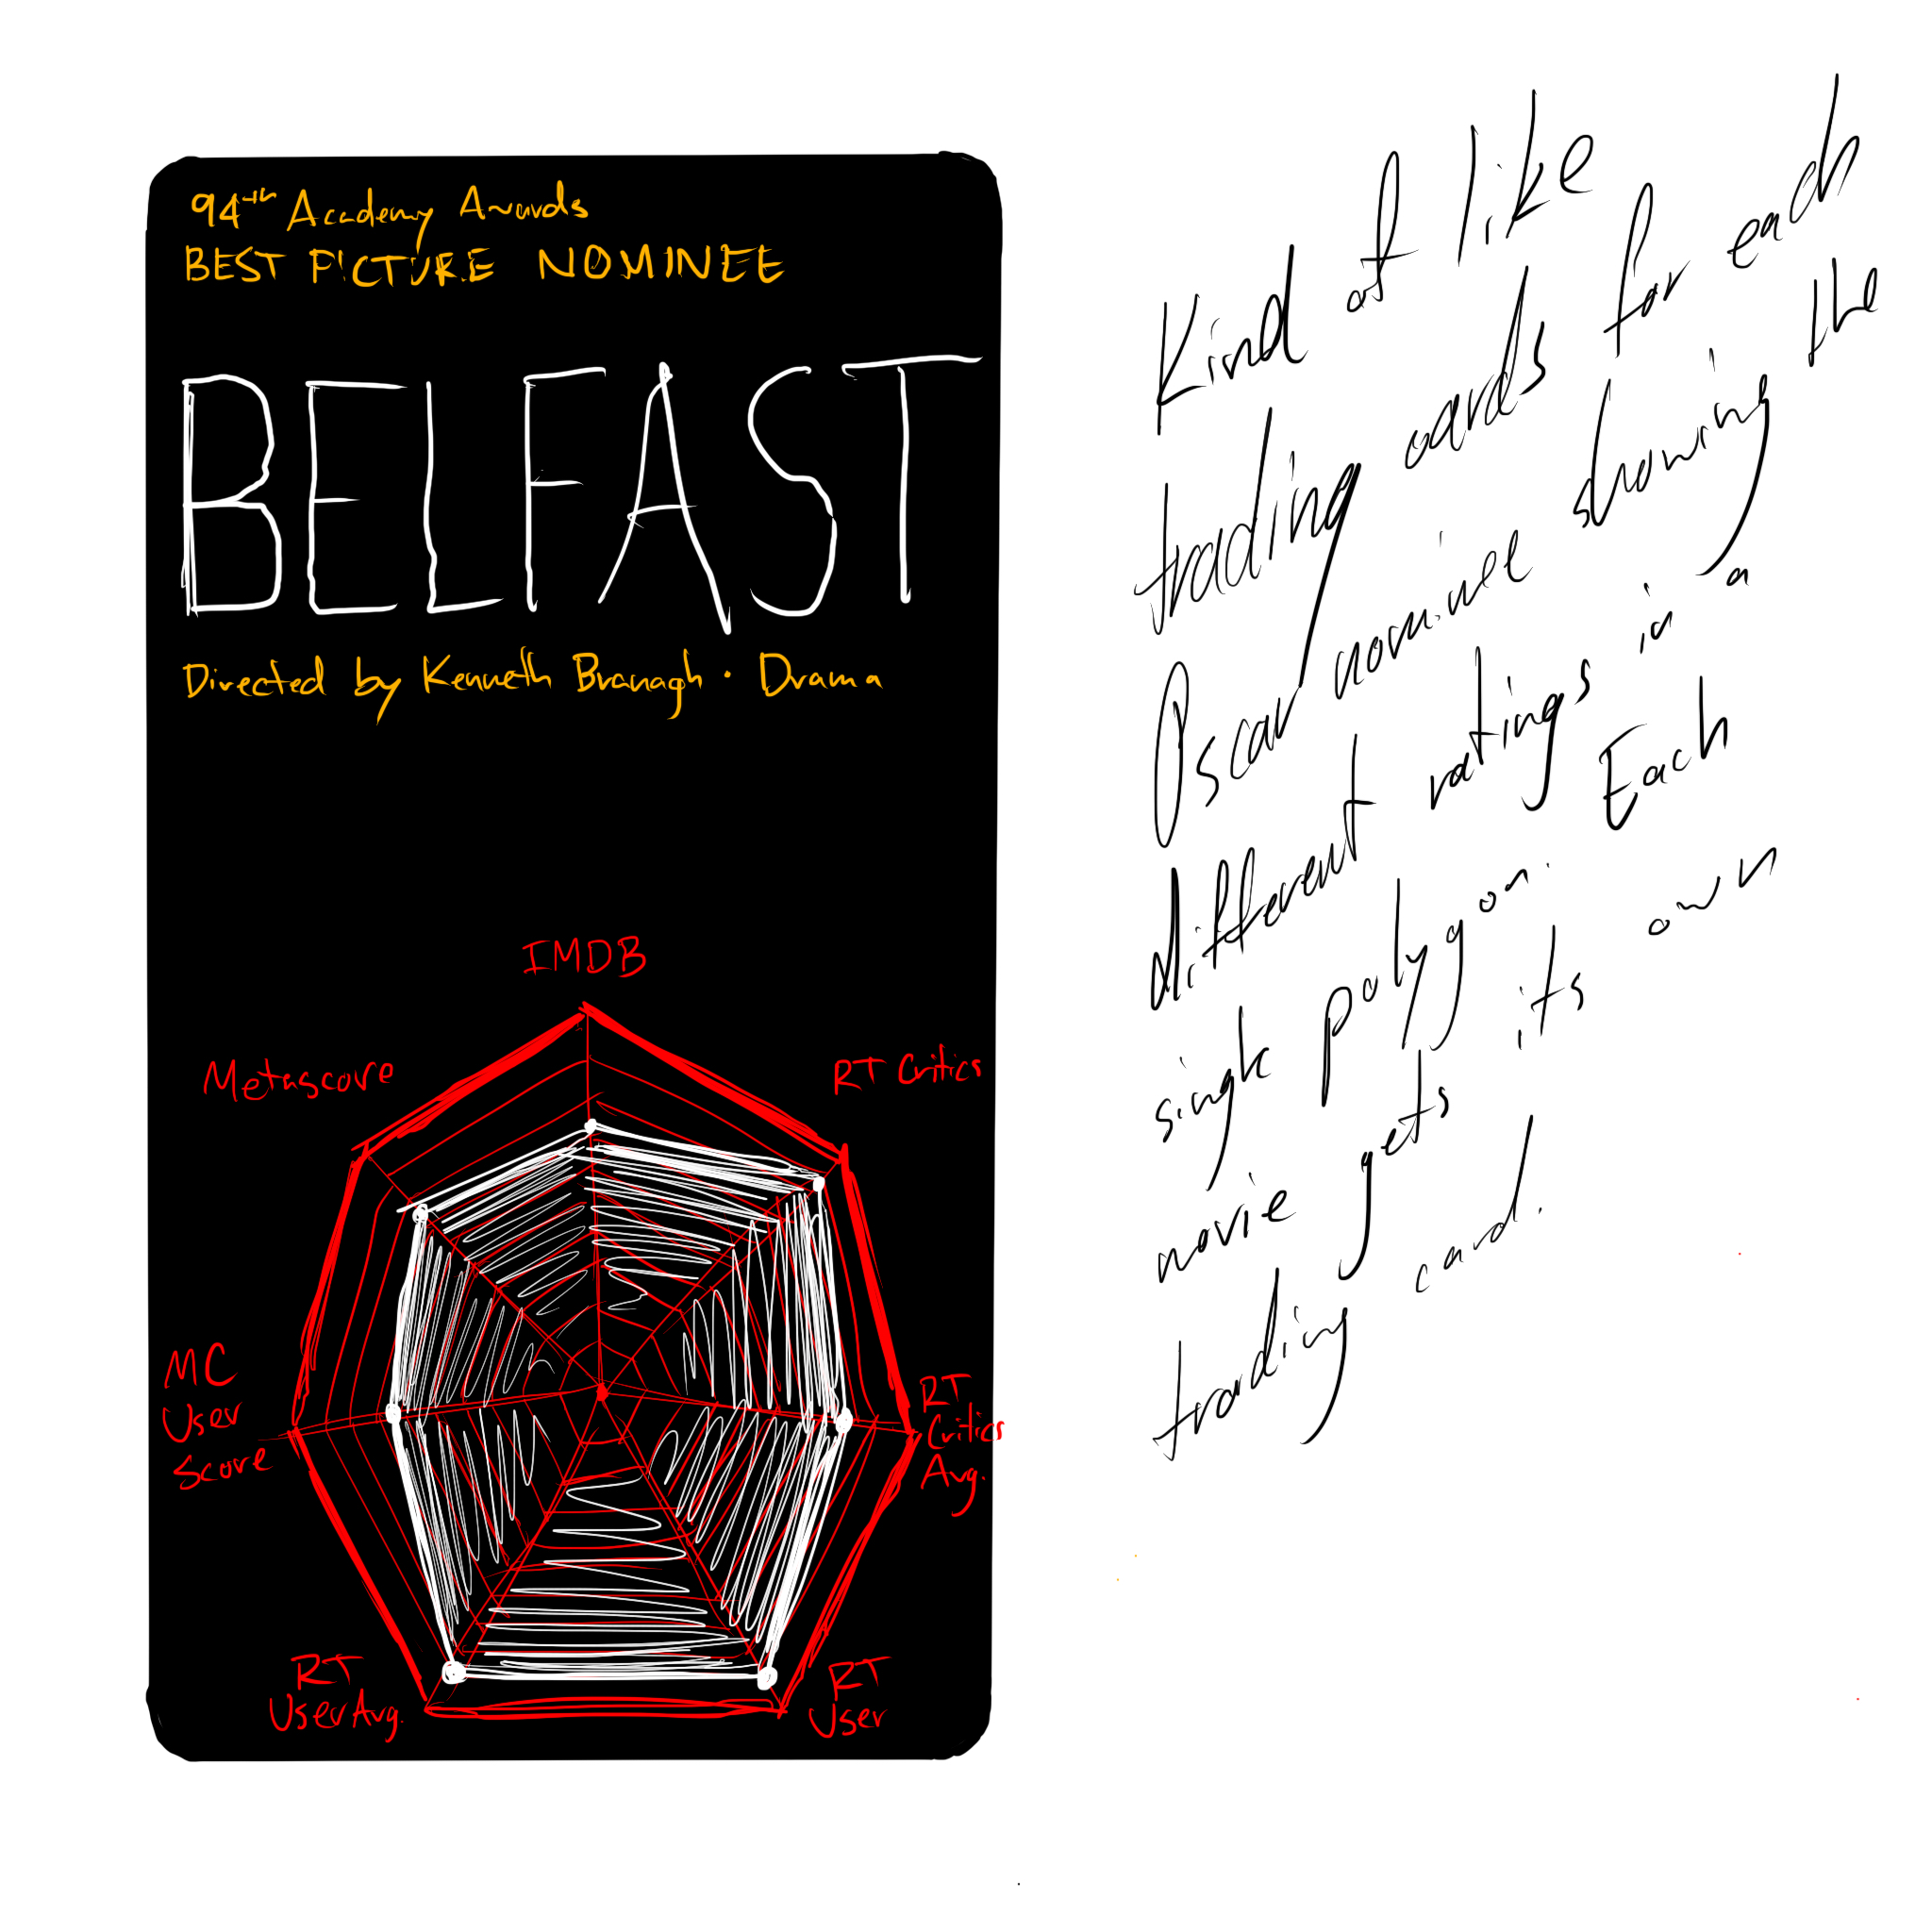 94th Academy Awards
BEST PICTURE NOMINEE
BELFAST
Directed by Kenneth Branagh · Drama
IMDB
Metascore
RT Critics
MC
User
Score
RT
Critics
Avg.
RT
User Avg.
RT
User
Kind of like
trading cards for each
Oscar nominee showing the
different ratings in a
single polygon. Each
movie gets its own
trading card.